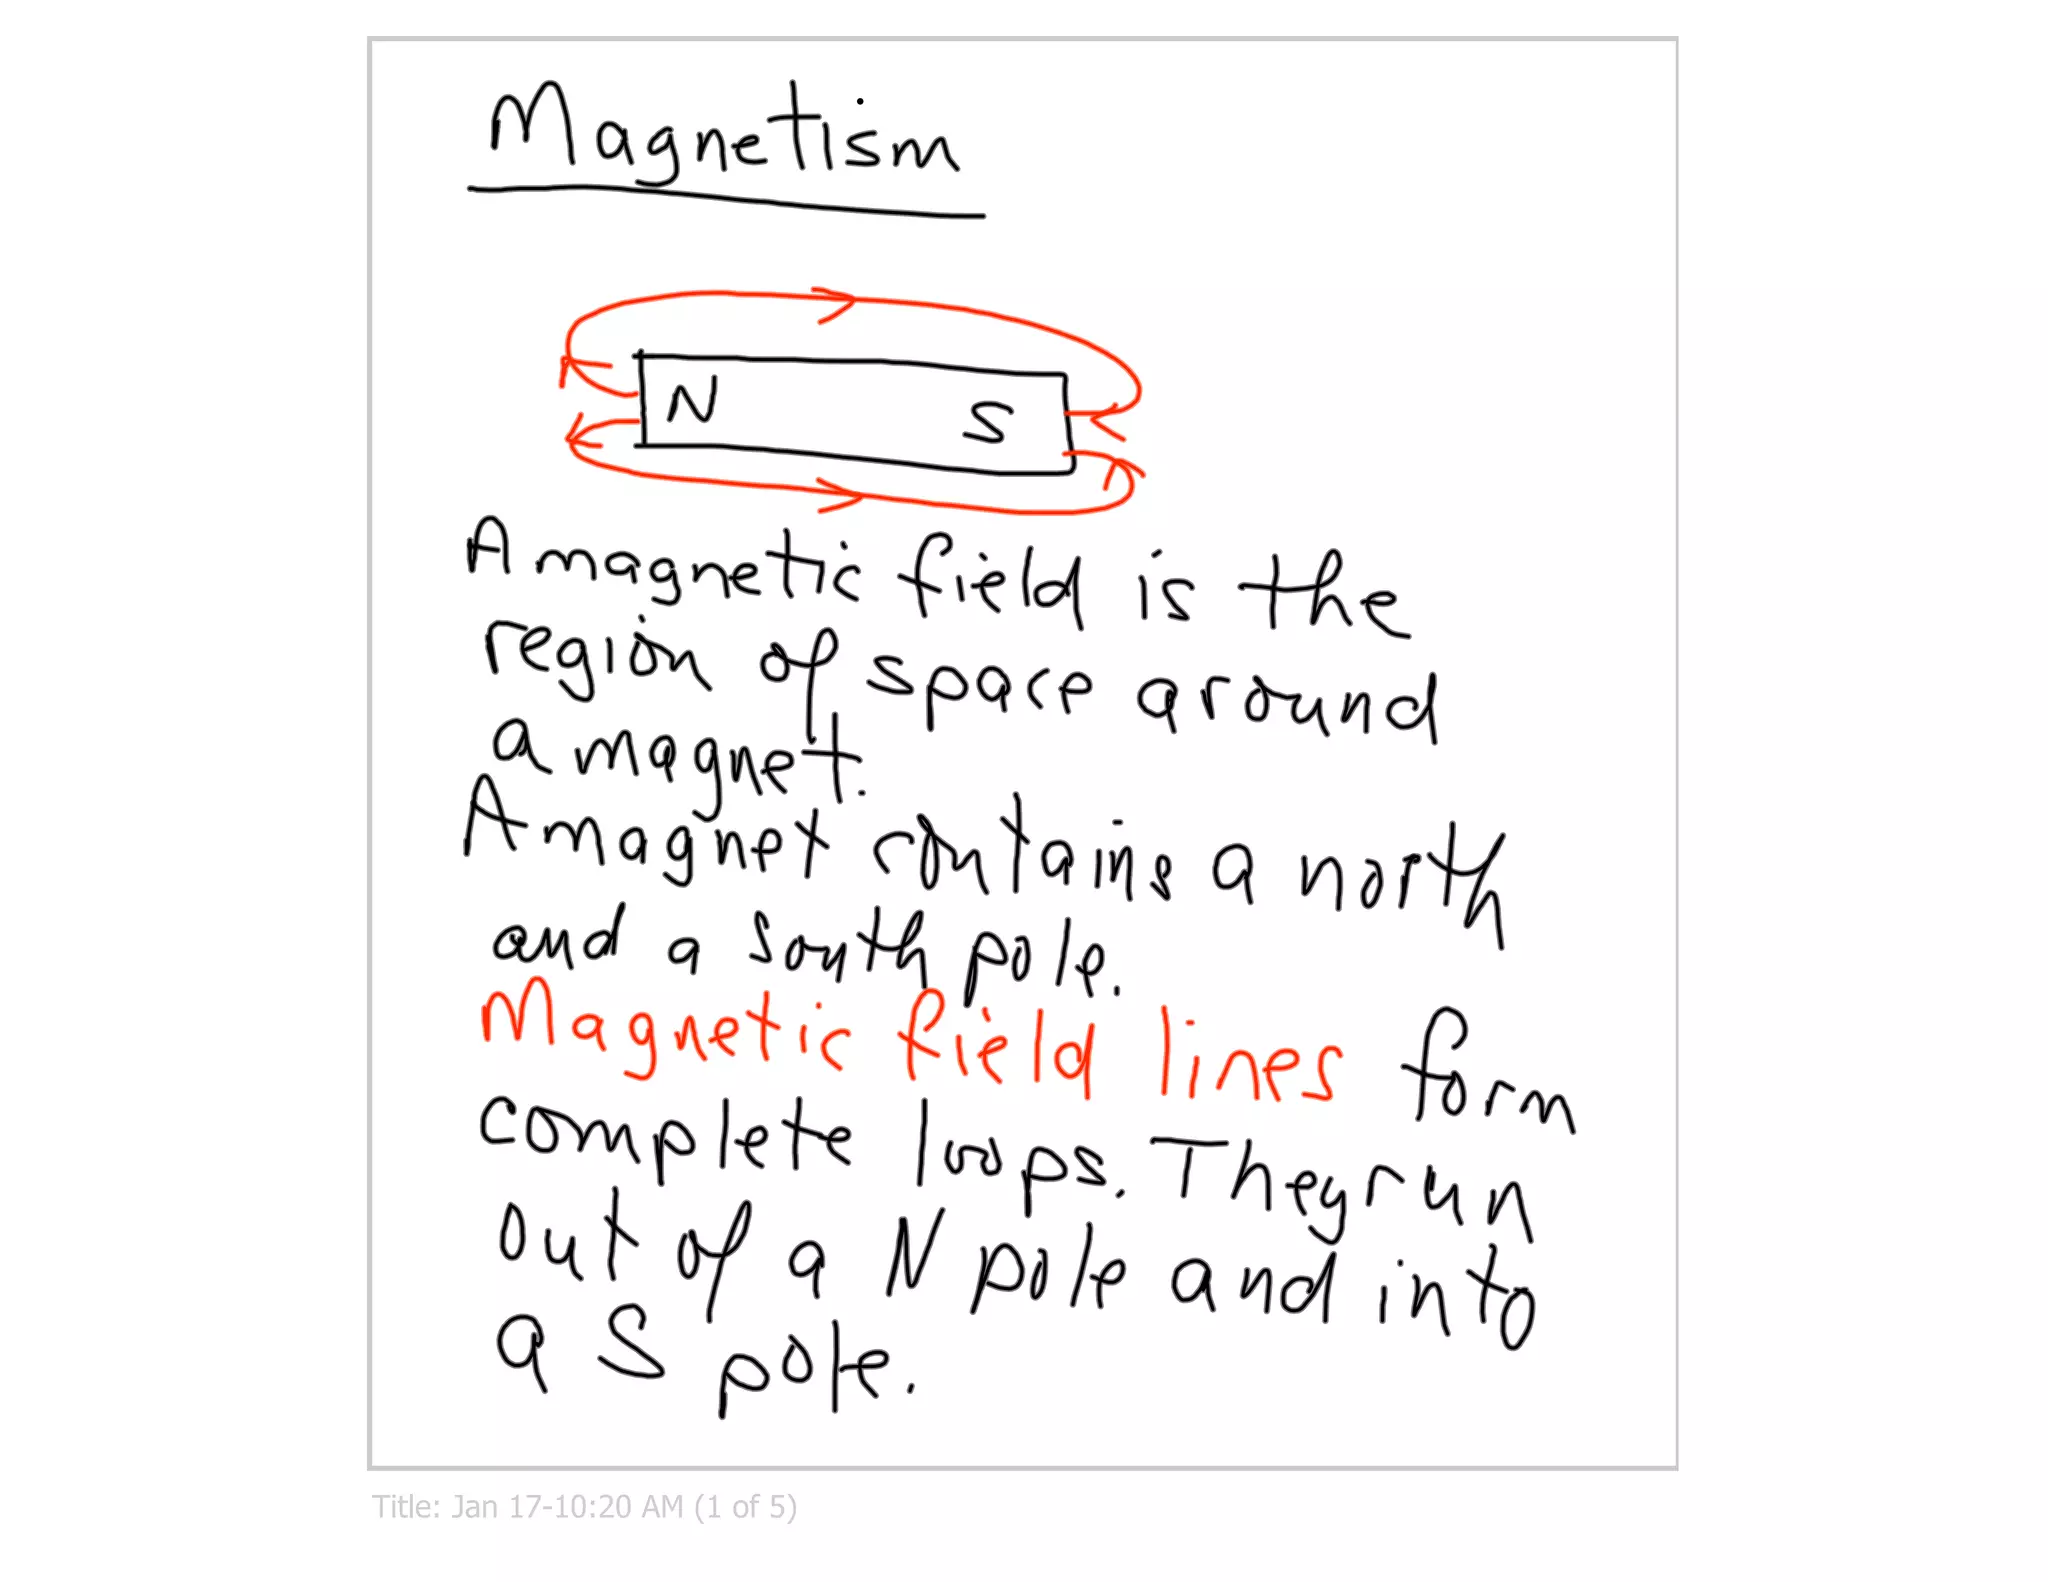 Magnetism
N S
A magnetic field is the
region of space around
a magnet.
A magnet contains a north
and a south pole.
Magnetic field lines form
complete loops. They run
out of a N pole and into
a S pole.
Title: Jan 17-10:20 AM (1 of 5)